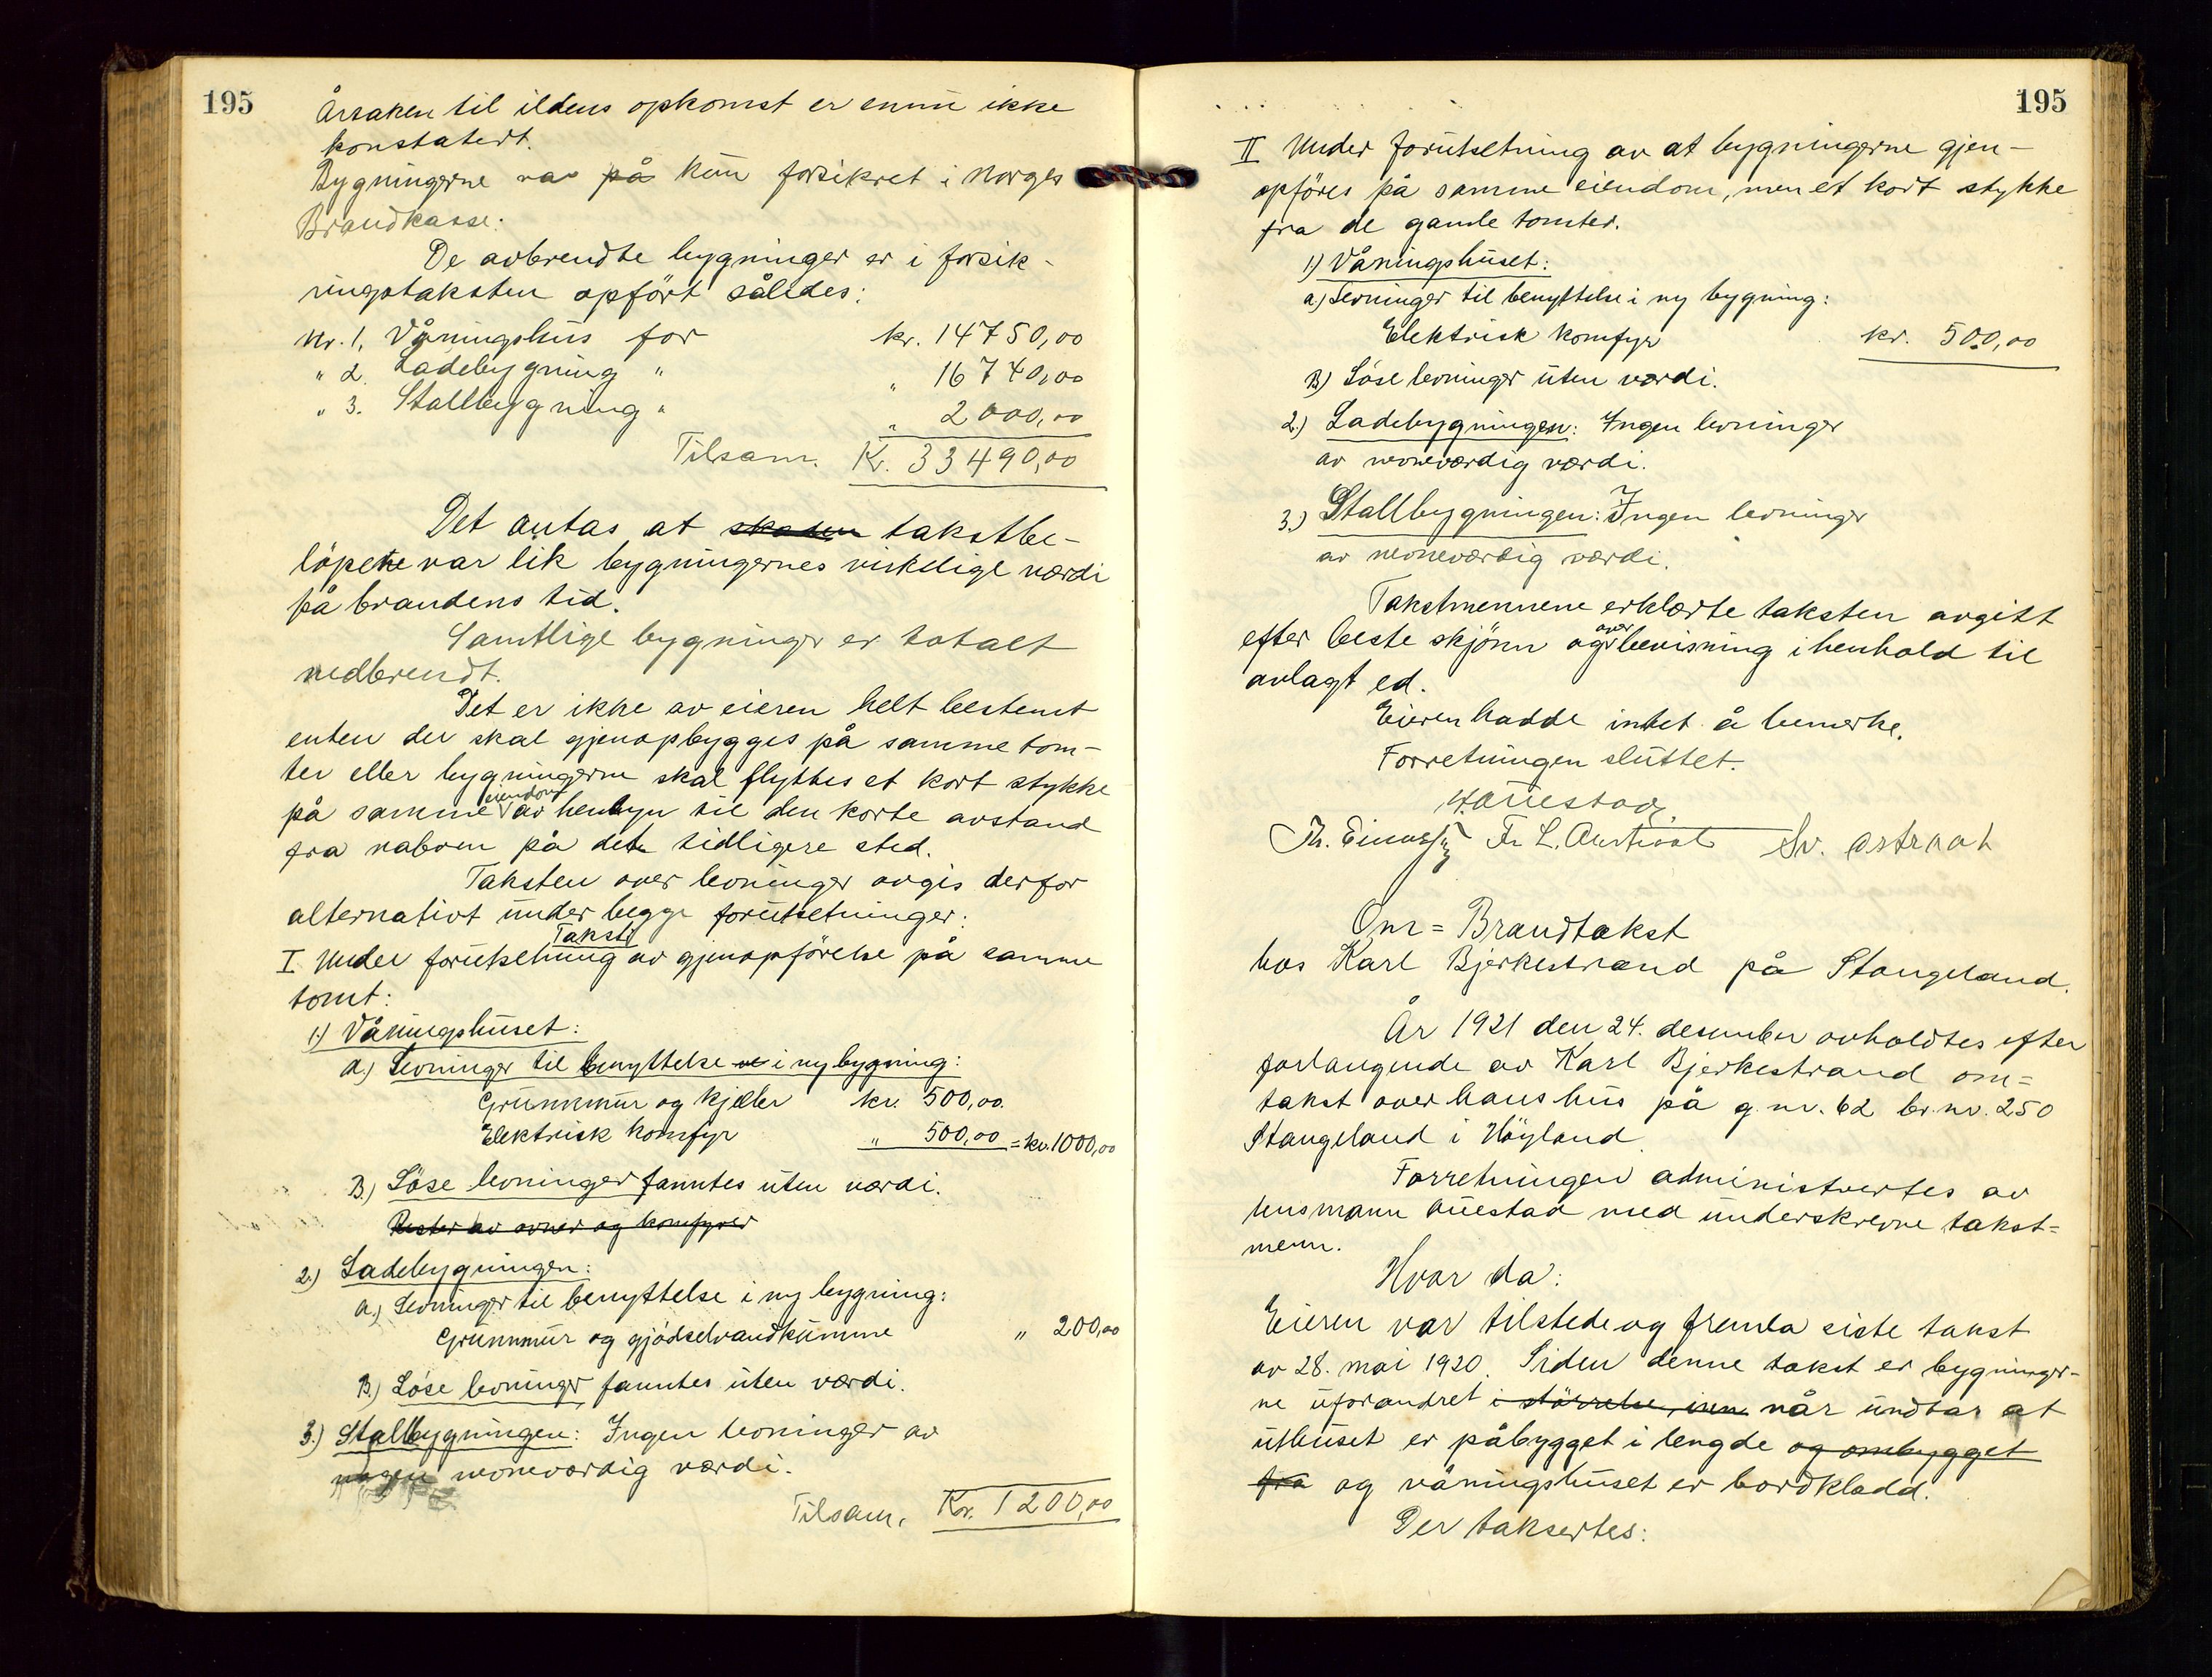 195
Årsaken til ildens opkomst er ennu ikke
konstatert.
Bygningerne var på kun forsikret i Norges
Brandkasse.
De avbrendte bygninger er i forsik-
ringstaksten opført således:
Nr. 1. Våningshus for kr. 14750,00
" 2. Ladebygning " " 16740,00
" 3. Stallbygning " " 2000,00
Tilsam. Kr. 33490,00
Det antas at skaden takstbe-
löpene var lik bygningernes virkelige værdi
på brandens tid.
Samtlige bygninger er totalt
nedbrendt.
Det er ikke av eieren helt bestemt
enten der skal gjenopbygges på samme tom-
ter eller bygningerne skal flyttes et kort stykke
på samme eiendom av hensyn til den korte avstand
fra naboen på det tidligere sted.
Taksten over levninger avgis derfor
alternativt under begge forutsetninger:
Takst
I Under forutsetning av gjenopförelse på samme
tomt:
1.) Våningshuset:
a.) Levninger til benyttelse i ny bygning:
Grunnmur og kjeller kr. 500,00
Elektrisk komfyr " 500,00 = kr. 1000,00
B.) Löse levninger fanntes uten værdi.
Rester av ovner og komfyrer
2.) Ladebygningen:
a.) Levninger til benyttelse i ny bygning:
Grunnmur og gjödselvandkumme " 200,00
B.) Löse levninger fanntes uten værdi.
3.) Stallbygningen: Ingen levninger av
nogen nevneværdig værdi.
Tilsam. Kr. 1200,00
195
II Under forutsetning av at bygningerne gjen-
opföres på samme eiendom, men et kort stykke
fra de gamle tomter.
1) Våningshuset:
a) Levninger til benyttelse i ny bygning:
Elektrisk komfyr kr. 500,00
B) Löse levninger uten værdi.
2.) Ladebygningen: Ingen levninger
av nevneværdig værdi.
3.) Stallbygningen: Ingen levninger
av nevneværdig værdi.
Takstmennene erklærte taksten avgitt
efter beste skjönn og overbevisning i henhold til
avlagt ed.
Eieren hadde intet å bemerke.
Forretningen sluttet.
H. Auestad
Sv. Østraat
Om=Brandtakst
hos Karl Bjerkestrand på Stangeland.
År 1921 den 24. desember avholdtes efter
forlangende av Karl Bjerkestrand om=
takst over hans hus på g.nr. 62 br.nr. 250
Stangeland i Höyland.
Forretningen administrertes av
lensmann Auestad med underskrevne takst=
menn.
Hvor da:
Eieren var tilstede og fremla siste takst
av 28. mai 1920. Siden denne takst er bygninger-
ne uforandret i störrelse, når undtas at
uthuset er påbygget i lengde og ombygget
fra og våningshuset er bordkledd.
Der taksertes: